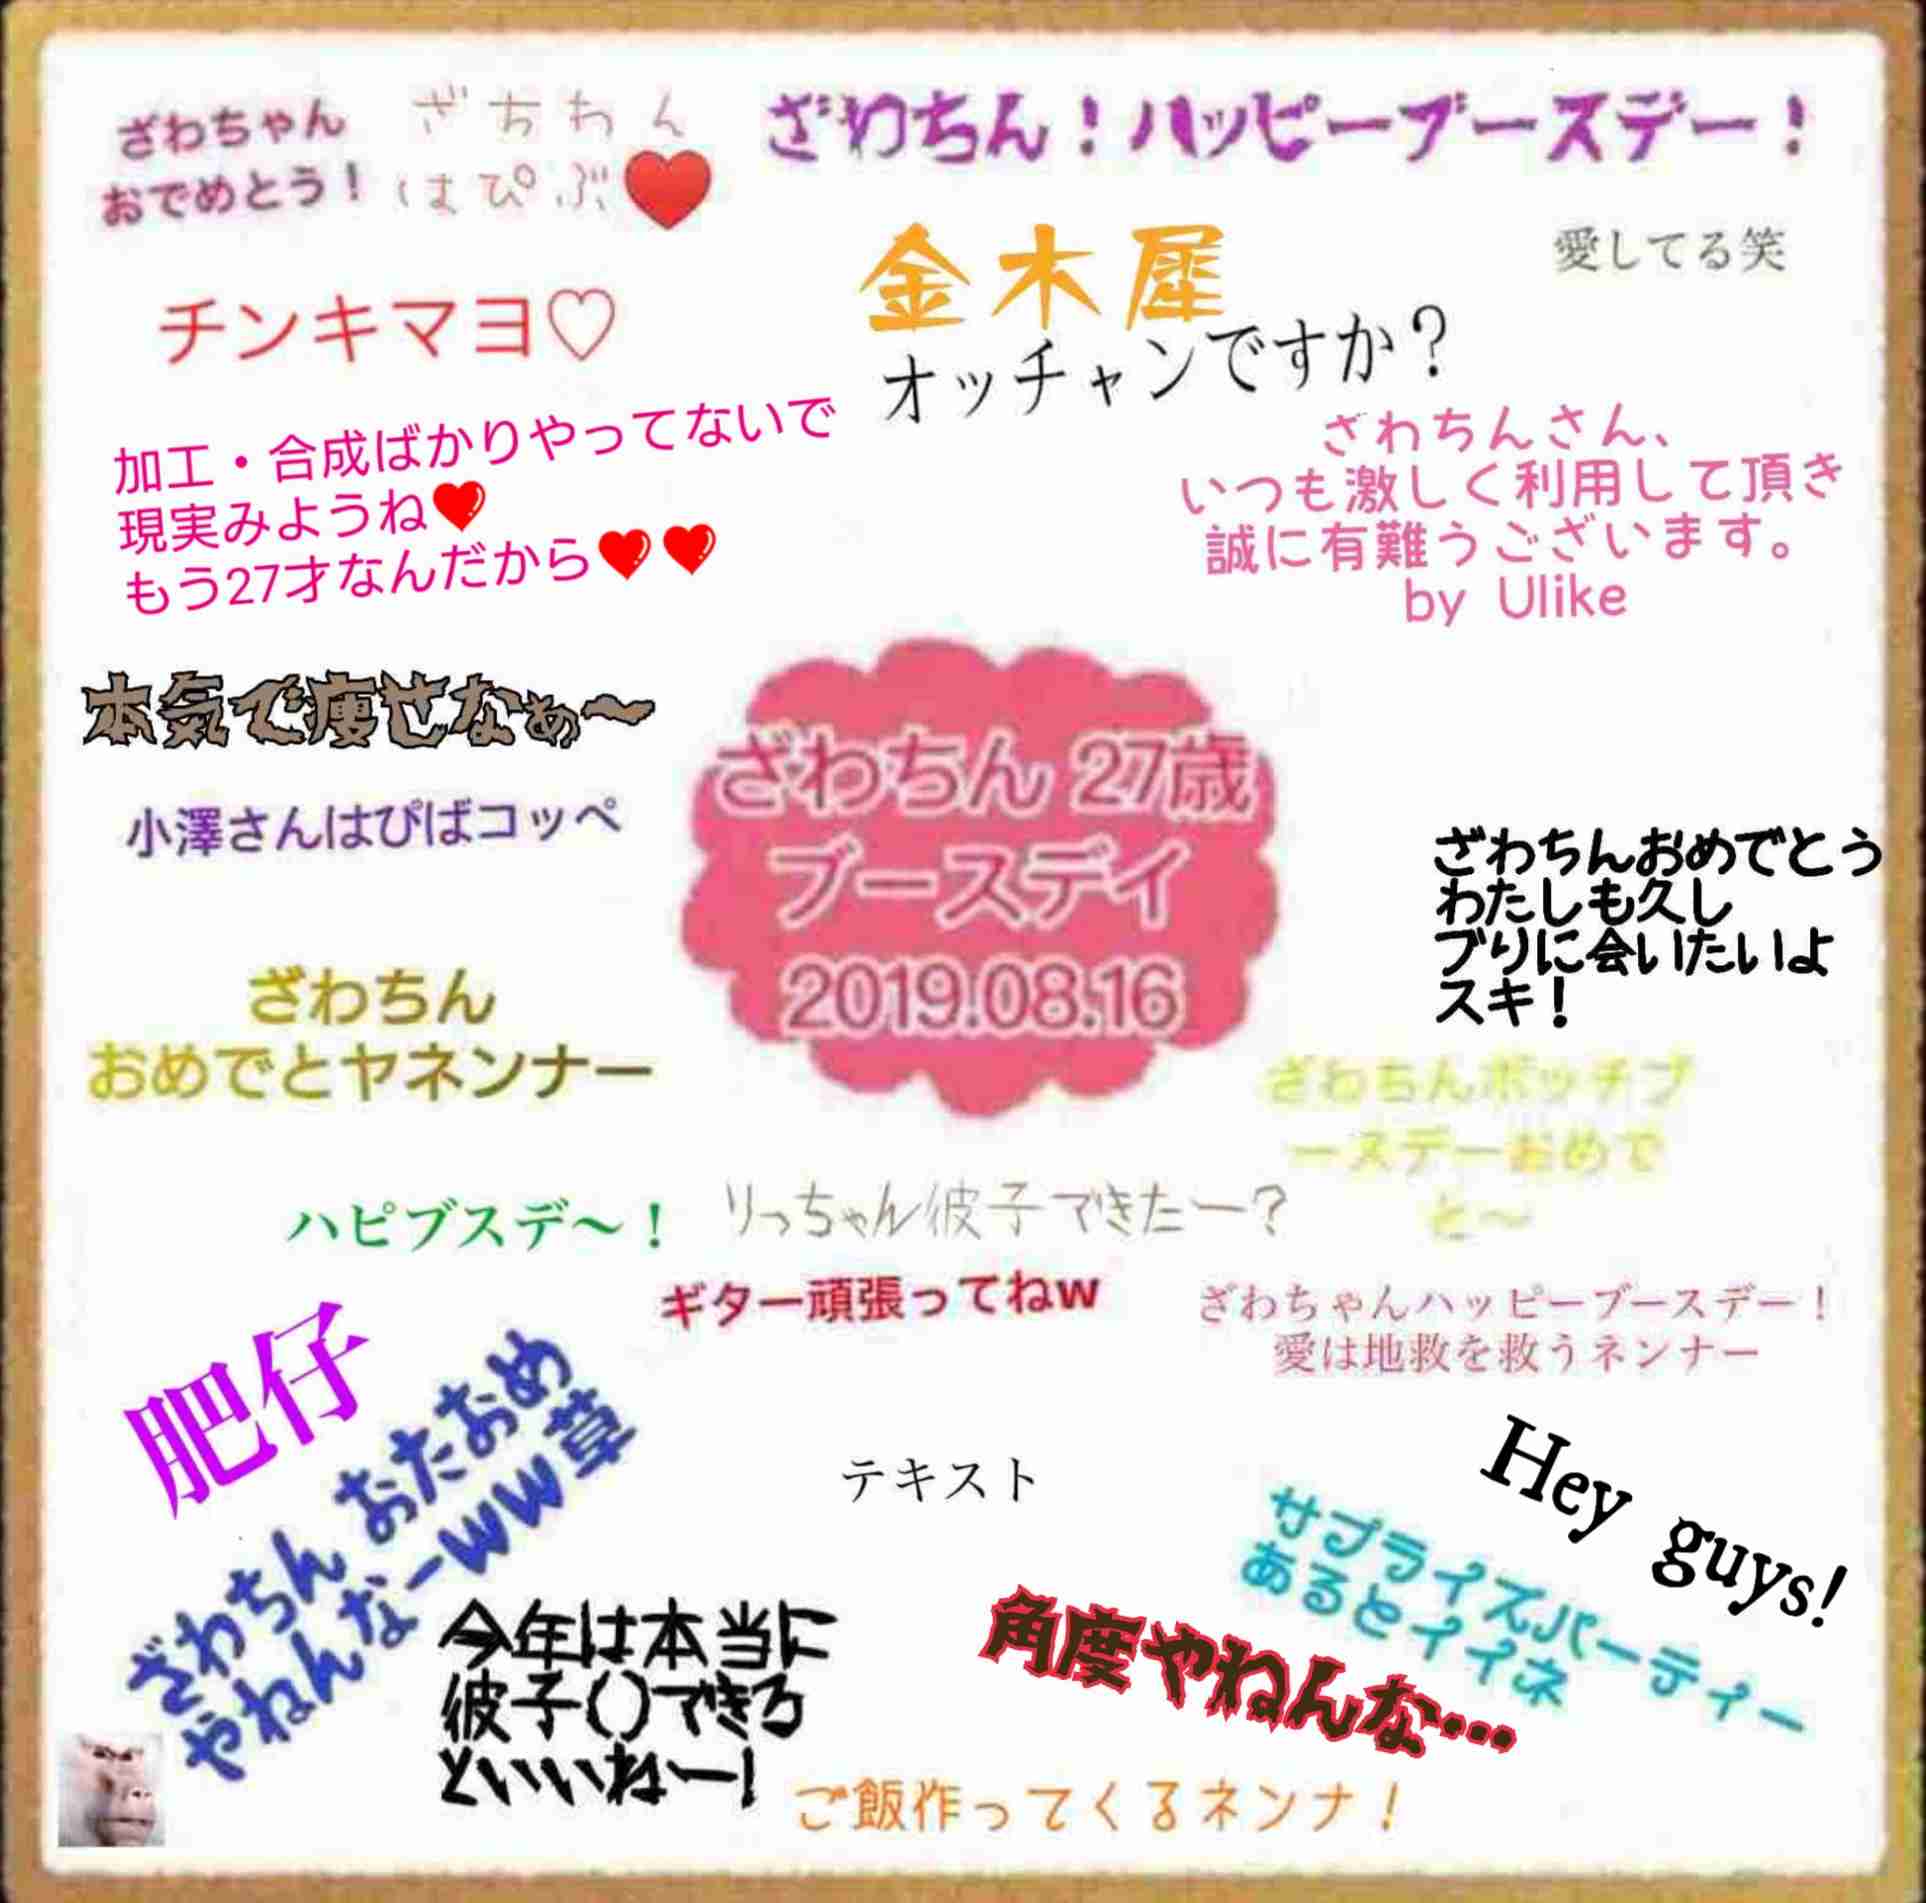 ざわちゃん
おでめとう!
ざちわん
はぴぶ
ざわちん!ハッピーブースデー!
金木犀
愛してる笑
チンキマヨ♡
オッチャンですか?
加工・合成ばかりやってないで
現実みようね
もう27才なんだから
ざわちんさん、
いつも激しく利用して頂き
誠に有難うございます。
by Ulike
本気で痩せなぁ〜
小澤さんはぴばコッペ
ざわちん 27歳
ブースデイ
2019.08.16
ざわちんおめでとう
わたしも久し
ブりに会いたいよ
スキ!
ざわちん
おめでとヤネンナー
ざわちんボッチブ
ースデーおめで
と〜
ハピブスデ〜!
りっちゃん彼子できたー?
ギター頑張ってねw
ざわちゃんハッピーブースデー!
愛は地救を救うネンナー
肥仔
ざわちん おたおめ
やねんなーww草
テキスト
Hey guys!
サプライズパーティー
あるとイイネ
今年は本当に
彼子()できろ
といいねー!
角度やねんな…
ご飯作ってくるネンナ!